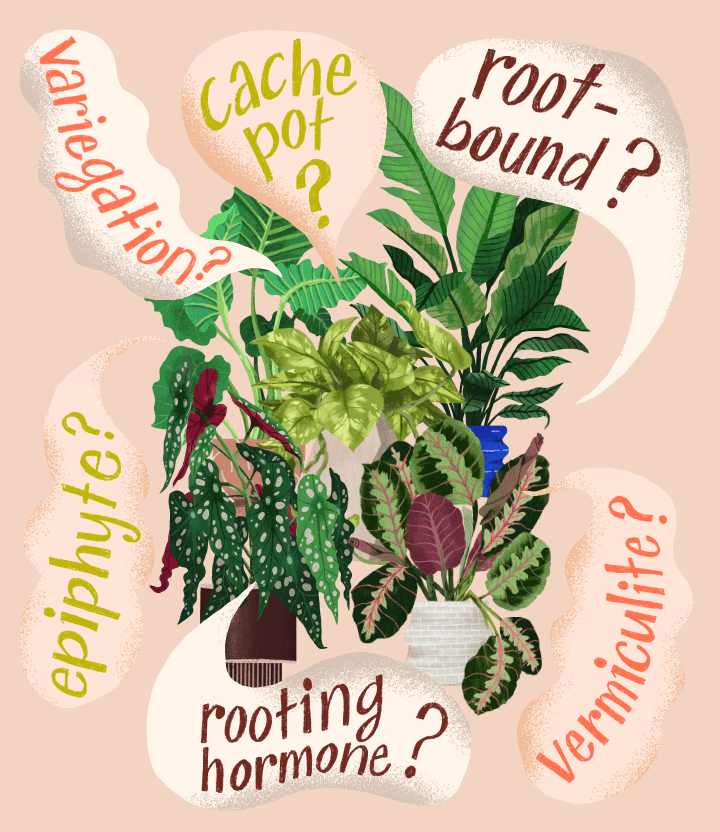 variegation?
cache
pot
?
root-
bound?
epiphyte?
vermiculite?
rooting
hormone?